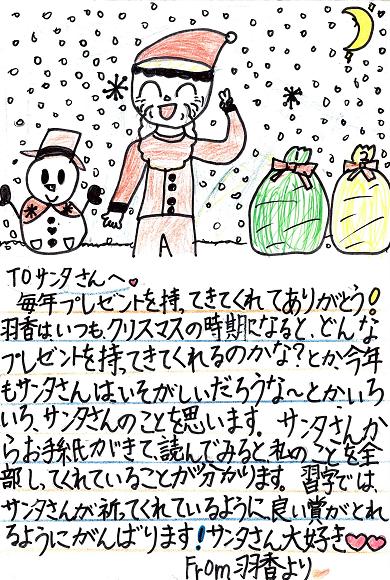 TOサンタさんへ
毎年プレゼントを持ってきてくれてありがとう!
羽香は、いつも、クリスマスの時期になると、どんな
プレゼントを持ってきてくれるのかな?とか、今年
もサンタさんは、いそがしいだろうな〜とかいろ
いろ、サンタさんのことを思います。サンタさんか
らお手紙がきて、読んでみると私のことを全
部しってくれていることが分かります。習字では、
サンタさんが祈ってくれているように良い賞がとれ
るようにがんばります!サンタさん大好き
From羽香より